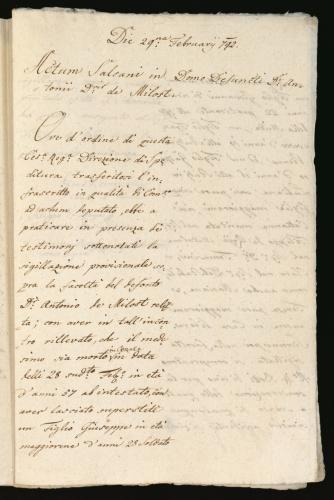 Die 29.na Februarij 792.
Actum Salcani in Domo Defuncti D.ni An-
tonii D.ni de Milost.
Ove d'ordine di questa
Ces.a Reg.a Direzione di Spe
ditura trasferitosi l'in,
frascritto in qualità di Com.
ad achem deputato, ebbe a
praticare in presenza de
testimonj sottonotati la
sigillazione provisionale so,
pra la facoltà del defonto
D.n Antonio de Milost relit,
ta; con aver in tall' incon,
tro rillevato, che il mede
simo sia morto in Gorizia in data
delli 28 sud.to Feb.o in età
d'anni 57 ab intestato, con
aver lasciato superstiti
un Figlio Giuseppe in età
maggiorene d'anni 28 Soldato